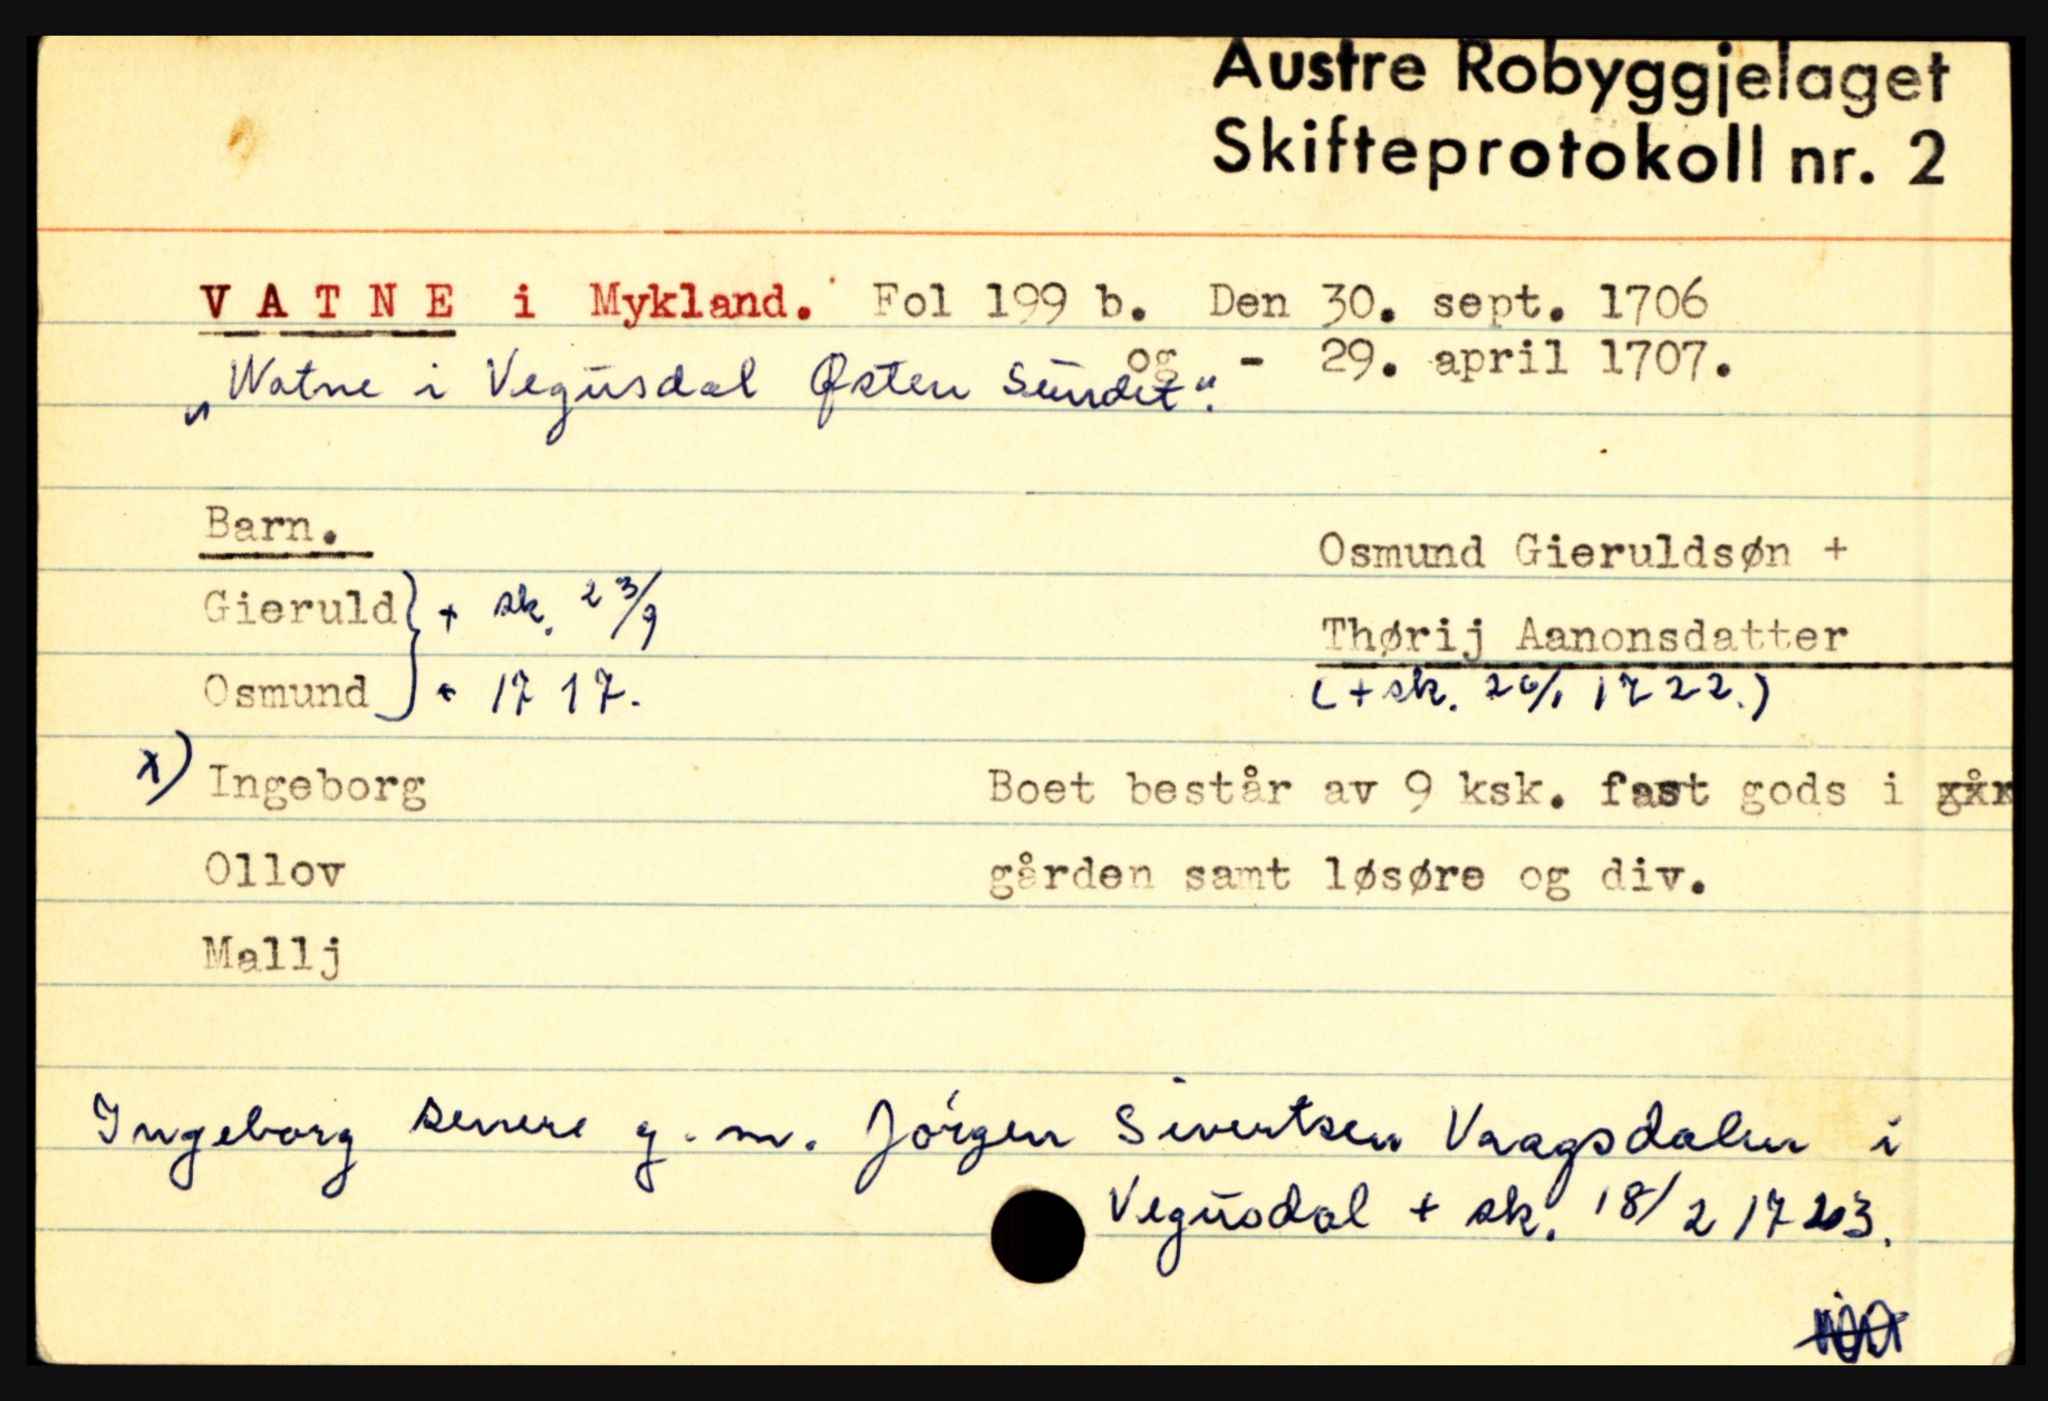 Austre Robyggjelaget
Skifteprotokoll nr. 2
V A T N E i Mykland. Fol 199 b. Den 30. sept. 1706
og - 29. april 1707.
„Watne i Vegusdal Østen Sundet“.
Barn.
Osmund Gieruldsøn +
Gieruld } + sk. 23/9
Thørij Aanonsdatter
Osmund } 1717.
(+ sk. 20/1 1722.)
x) Ingeborg
Boet består av 9 ksk. fast gods i
Ollov
gården samt løsøre og div.
Mallj
Ingeborg senere g.m. Jörgen Sivertsen Vaagsdalen i
Vegusdal + sk. 18/2 1723.